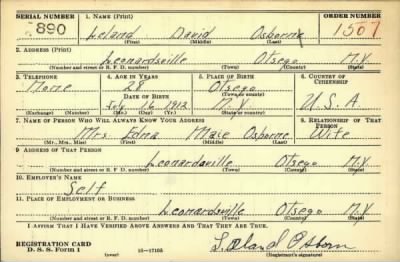 SERIAL NUMBER 1. NAME (Print) ORDER NUMBER
890 Leland David Osborne 1507
(First) (Middle) (Last)
2. ADDRESS (Print)
Leonardsville Otsego N.Y.
(Number and street or R. F. D. number) (Town) (County) (State)
3. TELEPHONE 4. AGE IN YEARS 5. PLACE OF BIRTH 6. COUNTRY OF CITIZENSHIP
None 28 Otsego
DATE OF BIRTH (Town or county)
July 16 1912 N.Y. U.S.A.
(Exchange) (Number) (Mo.) (Day) (Yr.) (State or country)
7. NAME OF PERSON WHO WILL ALWAYS KNOW YOUR ADDRESS 8. RELATIONSHIP OF THAT PERSON
Mrs. Edna Marie Osborne Wife
(Mr., Mrs., Miss) (First) (Middle) (Last)
9. ADDRESS OF THAT PERSON
Leonardsville Otsego N.Y.
(Number and street or R. F. D. number) (Town) (County) (State)
10. EMPLOYER'S NAME
Self
11. PLACE OF EMPLOYMENT OR BUSINESS
Leonardsville Otsego N.Y.
(Number and street or R. F. D. number) (Town) (County) (State)
I AFFIRM THAT I HAVE VERIFIED ABOVE ANSWERS AND THAT THEY ARE TRUE.
REGISTRATION CARD
D. S. S. Form 1 (over) 16—17105 (Registrant's signature)